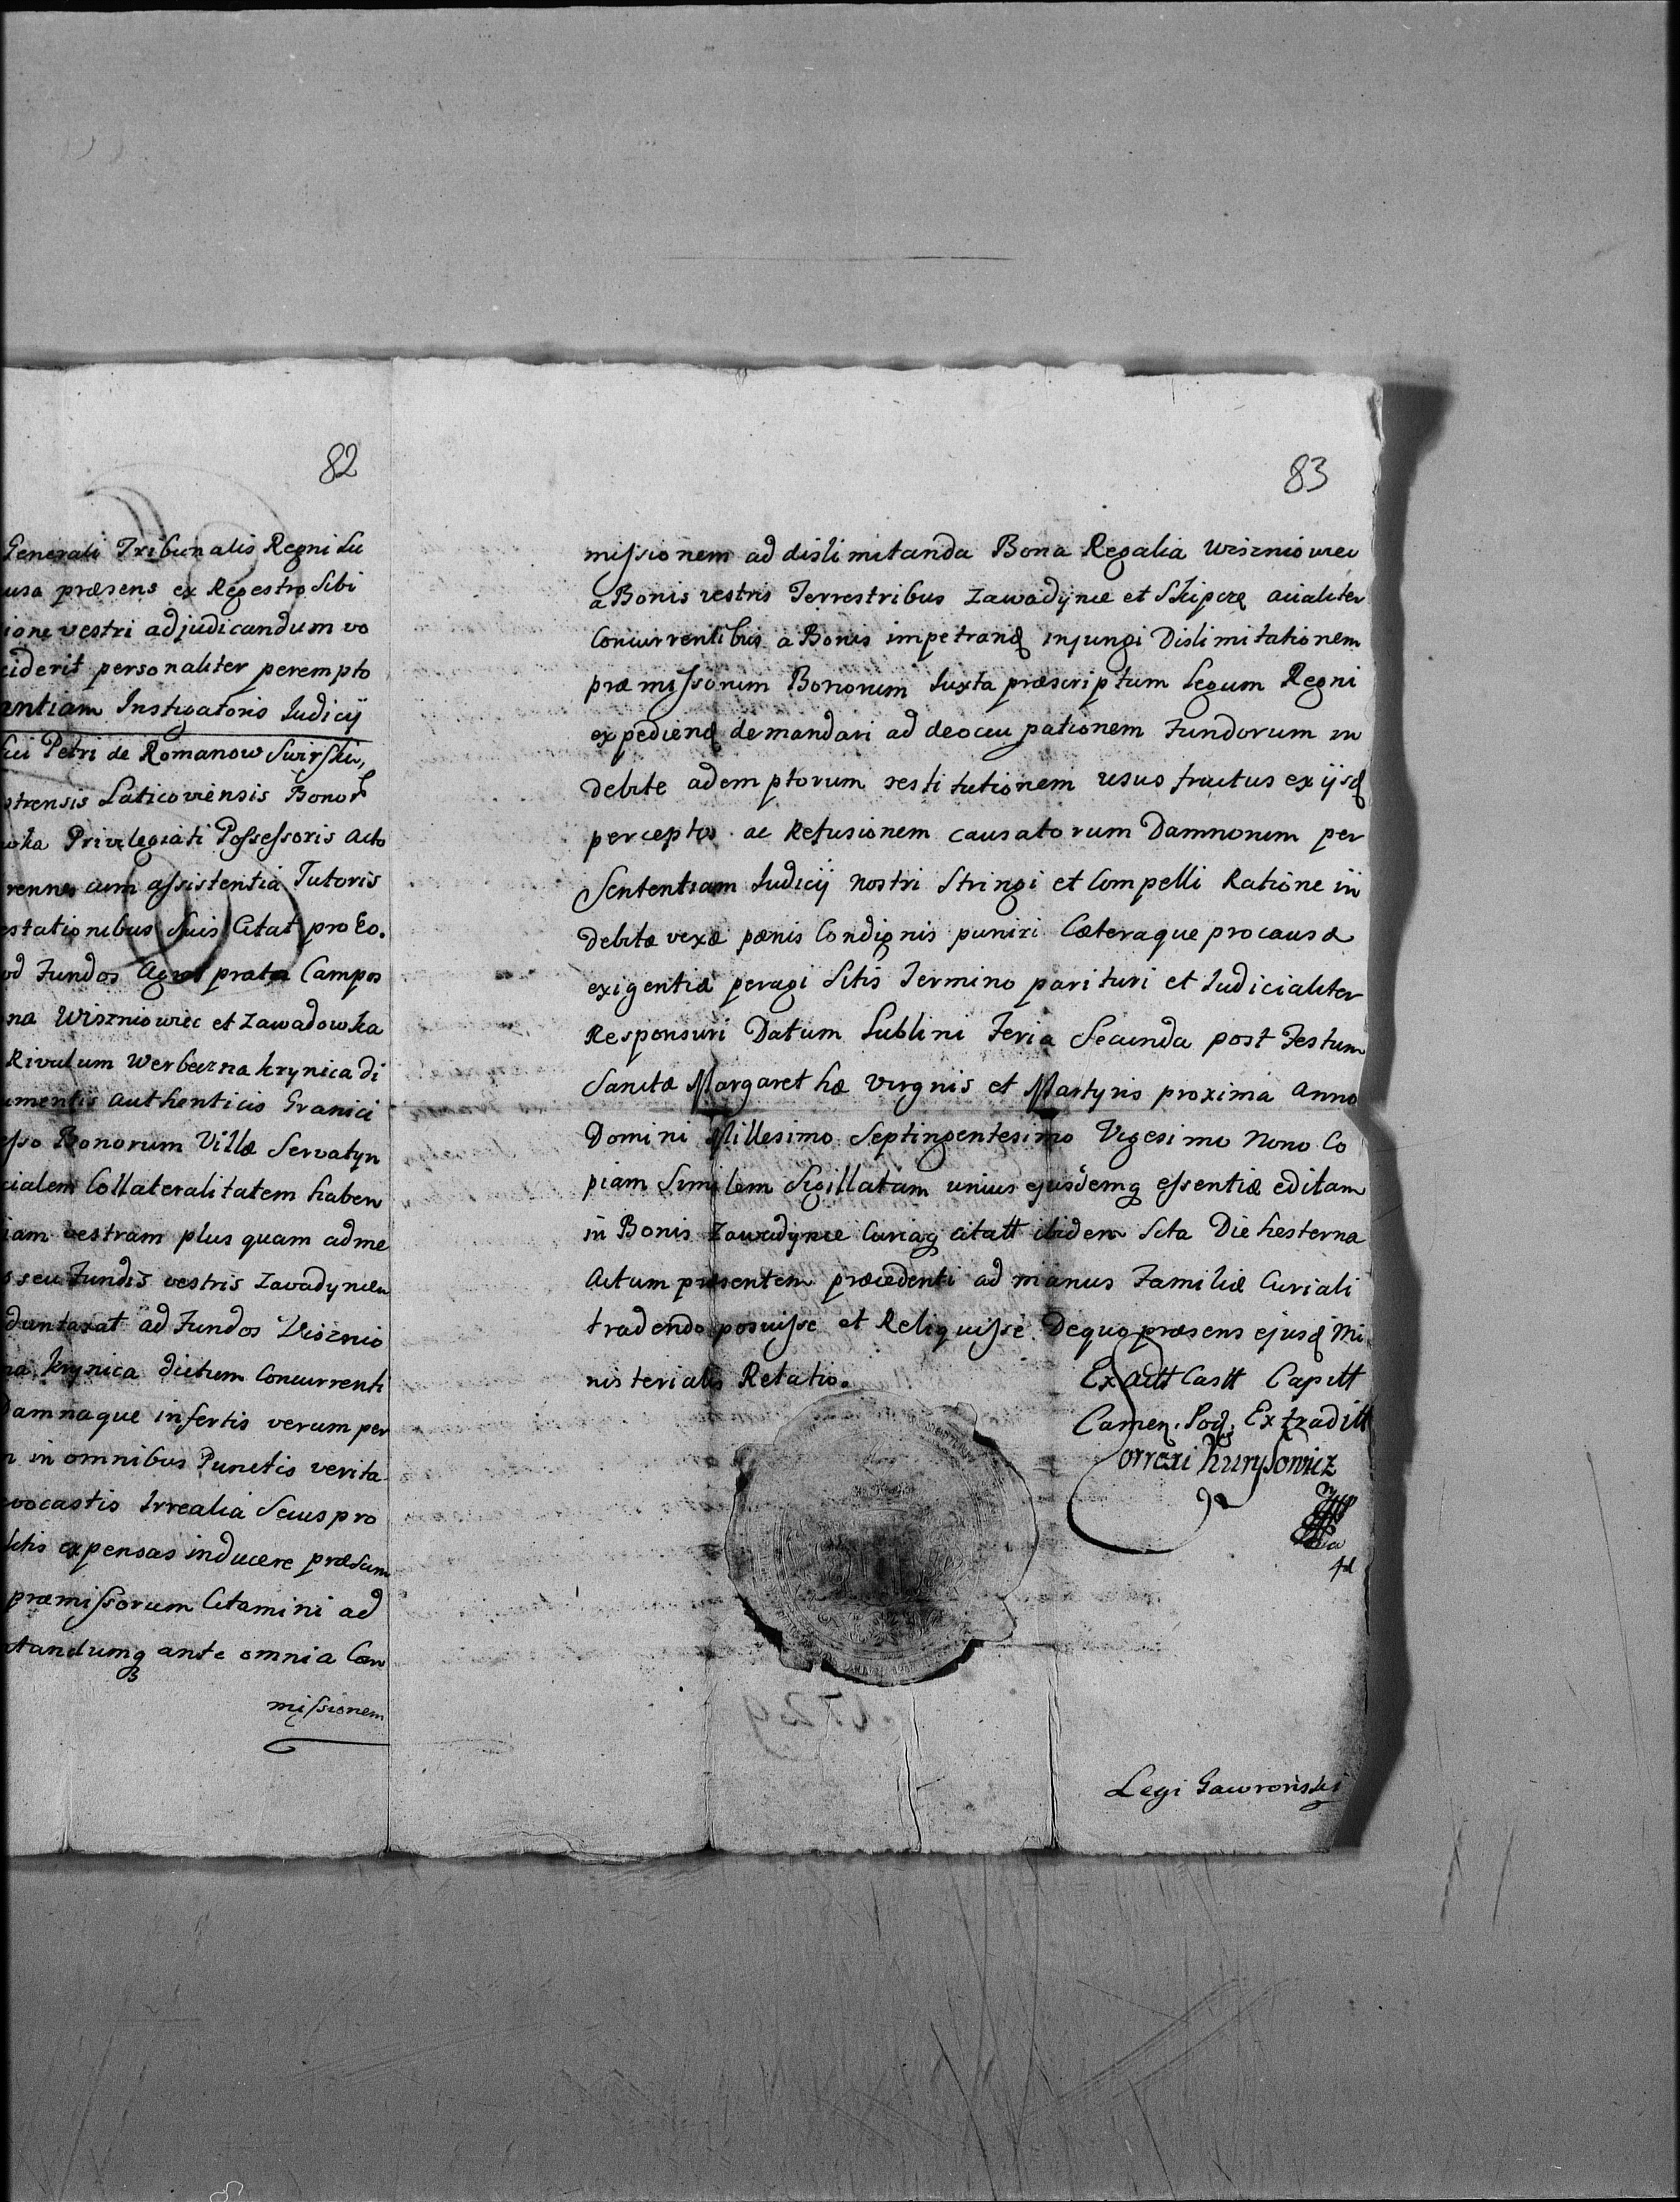 82
Generali Tribunalis Regni Lu
usa præsens ex Regestro Sibi
ione vestri adjudicandum vo
ciderit personaliter perempto
antiam Instigatoris Judicij
Petri de Romanow Swirski,
strensis Laticoviensis Bonor
wka Privilegiati Possessoris Acto
rennes cum assistentia Tutoris
estationibus Suis Citat pro Eo.
od Fundos Agros prata Campos
na Wiszniowiec et Zawadowka
Rivulum Werbeczna krynica di
umentis authenticis Granici
esso Bonorum Villæ Servatyn
cialem Collateralitatem haben
iam vestram plus quam adme
s seu Fundis vestris Zavadyncen
duntaxat ad Fundos Visznio
na krynica dictum Concurrenti
Damnaque infertis verum per
n in omnibus Punctis verita
vocastis Irrealia Seuspro
expensas inducere præsum
præmissorum Citamini ad
ctandumq ante omnia Com
missionem
83
missionem ad dislimitanda Bona Regalia Wiszniowiec
a Bonis vestris Terrestribus Zawadynce et Skipcze aiialiter
Concurrentibus a Bonis impetrand injungi Dislimitationem
præmissorum Bonorum Juxta præscriptum Legum Regni
expediend demandari ad deoccupationem Fundorum in
debite ademptorum restitutionem usus fructus ex ijsd
perceptos ac Refusionem causatorum Damnorum per
Sententiam Judicij nostri Stringi et Compelli Ratione in
debitæ vexæ pænis Condignis puniri Cæteraque pro causæ
exigentia peragi Sitis Termino parituri et Judicialiter
Responsuri Datum Lublini Feria Secunda post Festum
Sanctæ Margarethæ Virgnis et Martyris proxima Anno
Domini Millesimo Septingentesimo Vigesimo Nono Co
piam Similem Sigillatam unius ejusdemq essentiæ editam
in Bonis Zawadynce Curiaq citatt ibidem Sita Die hesterna
Actum præsentem præcedenti ad manus Familiæ Curiali
tradendo posuisse et Reliquisse De quo præsens ejusd Mi
nisterialis Relatio.
Ex Actt Castt Capitt
Camen. Pod. Extraditt
Correxi Kurysowicz
1729
Legi Gawroński